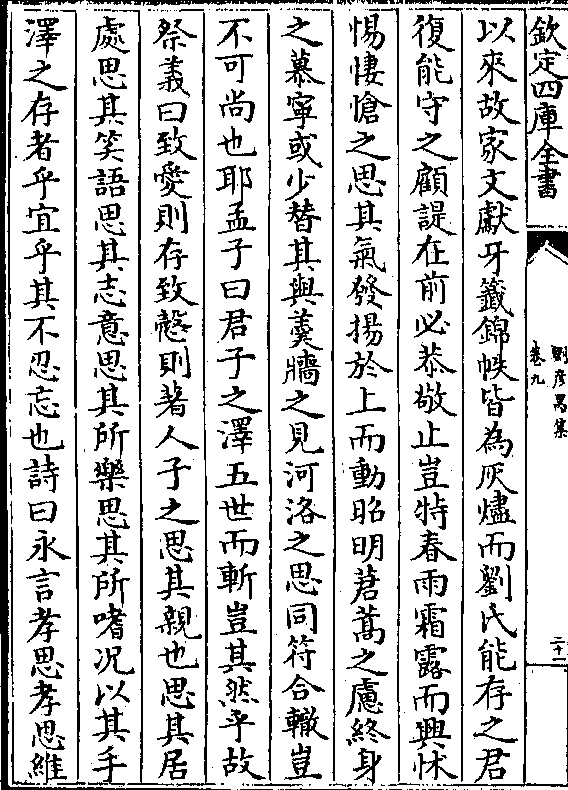 欽定四庫全書
劉彦昺集
卷九
二十一
以來故家文獻牙籖錦帙皆為灰燼而劉氏能存之君
復能守之顧諟在前必恭敬止豈特春雨霜露而興怵
惕悽愴之思其氣發揚於上而動昭明焄蒿之慮終身
之慕寧或少替其與羮牆之見河洛之思同符合轍豈
不可尚也耶孟子曰君子之澤五世而斬豈其然乎故
祭義曰致愛則存致慤則著人子之思其親也思其居
處思其笑語思其志意思其所樂思其所嗜况以其手
澤之存者乎宜乎其不忍忘也詩曰永言孝思孝思維